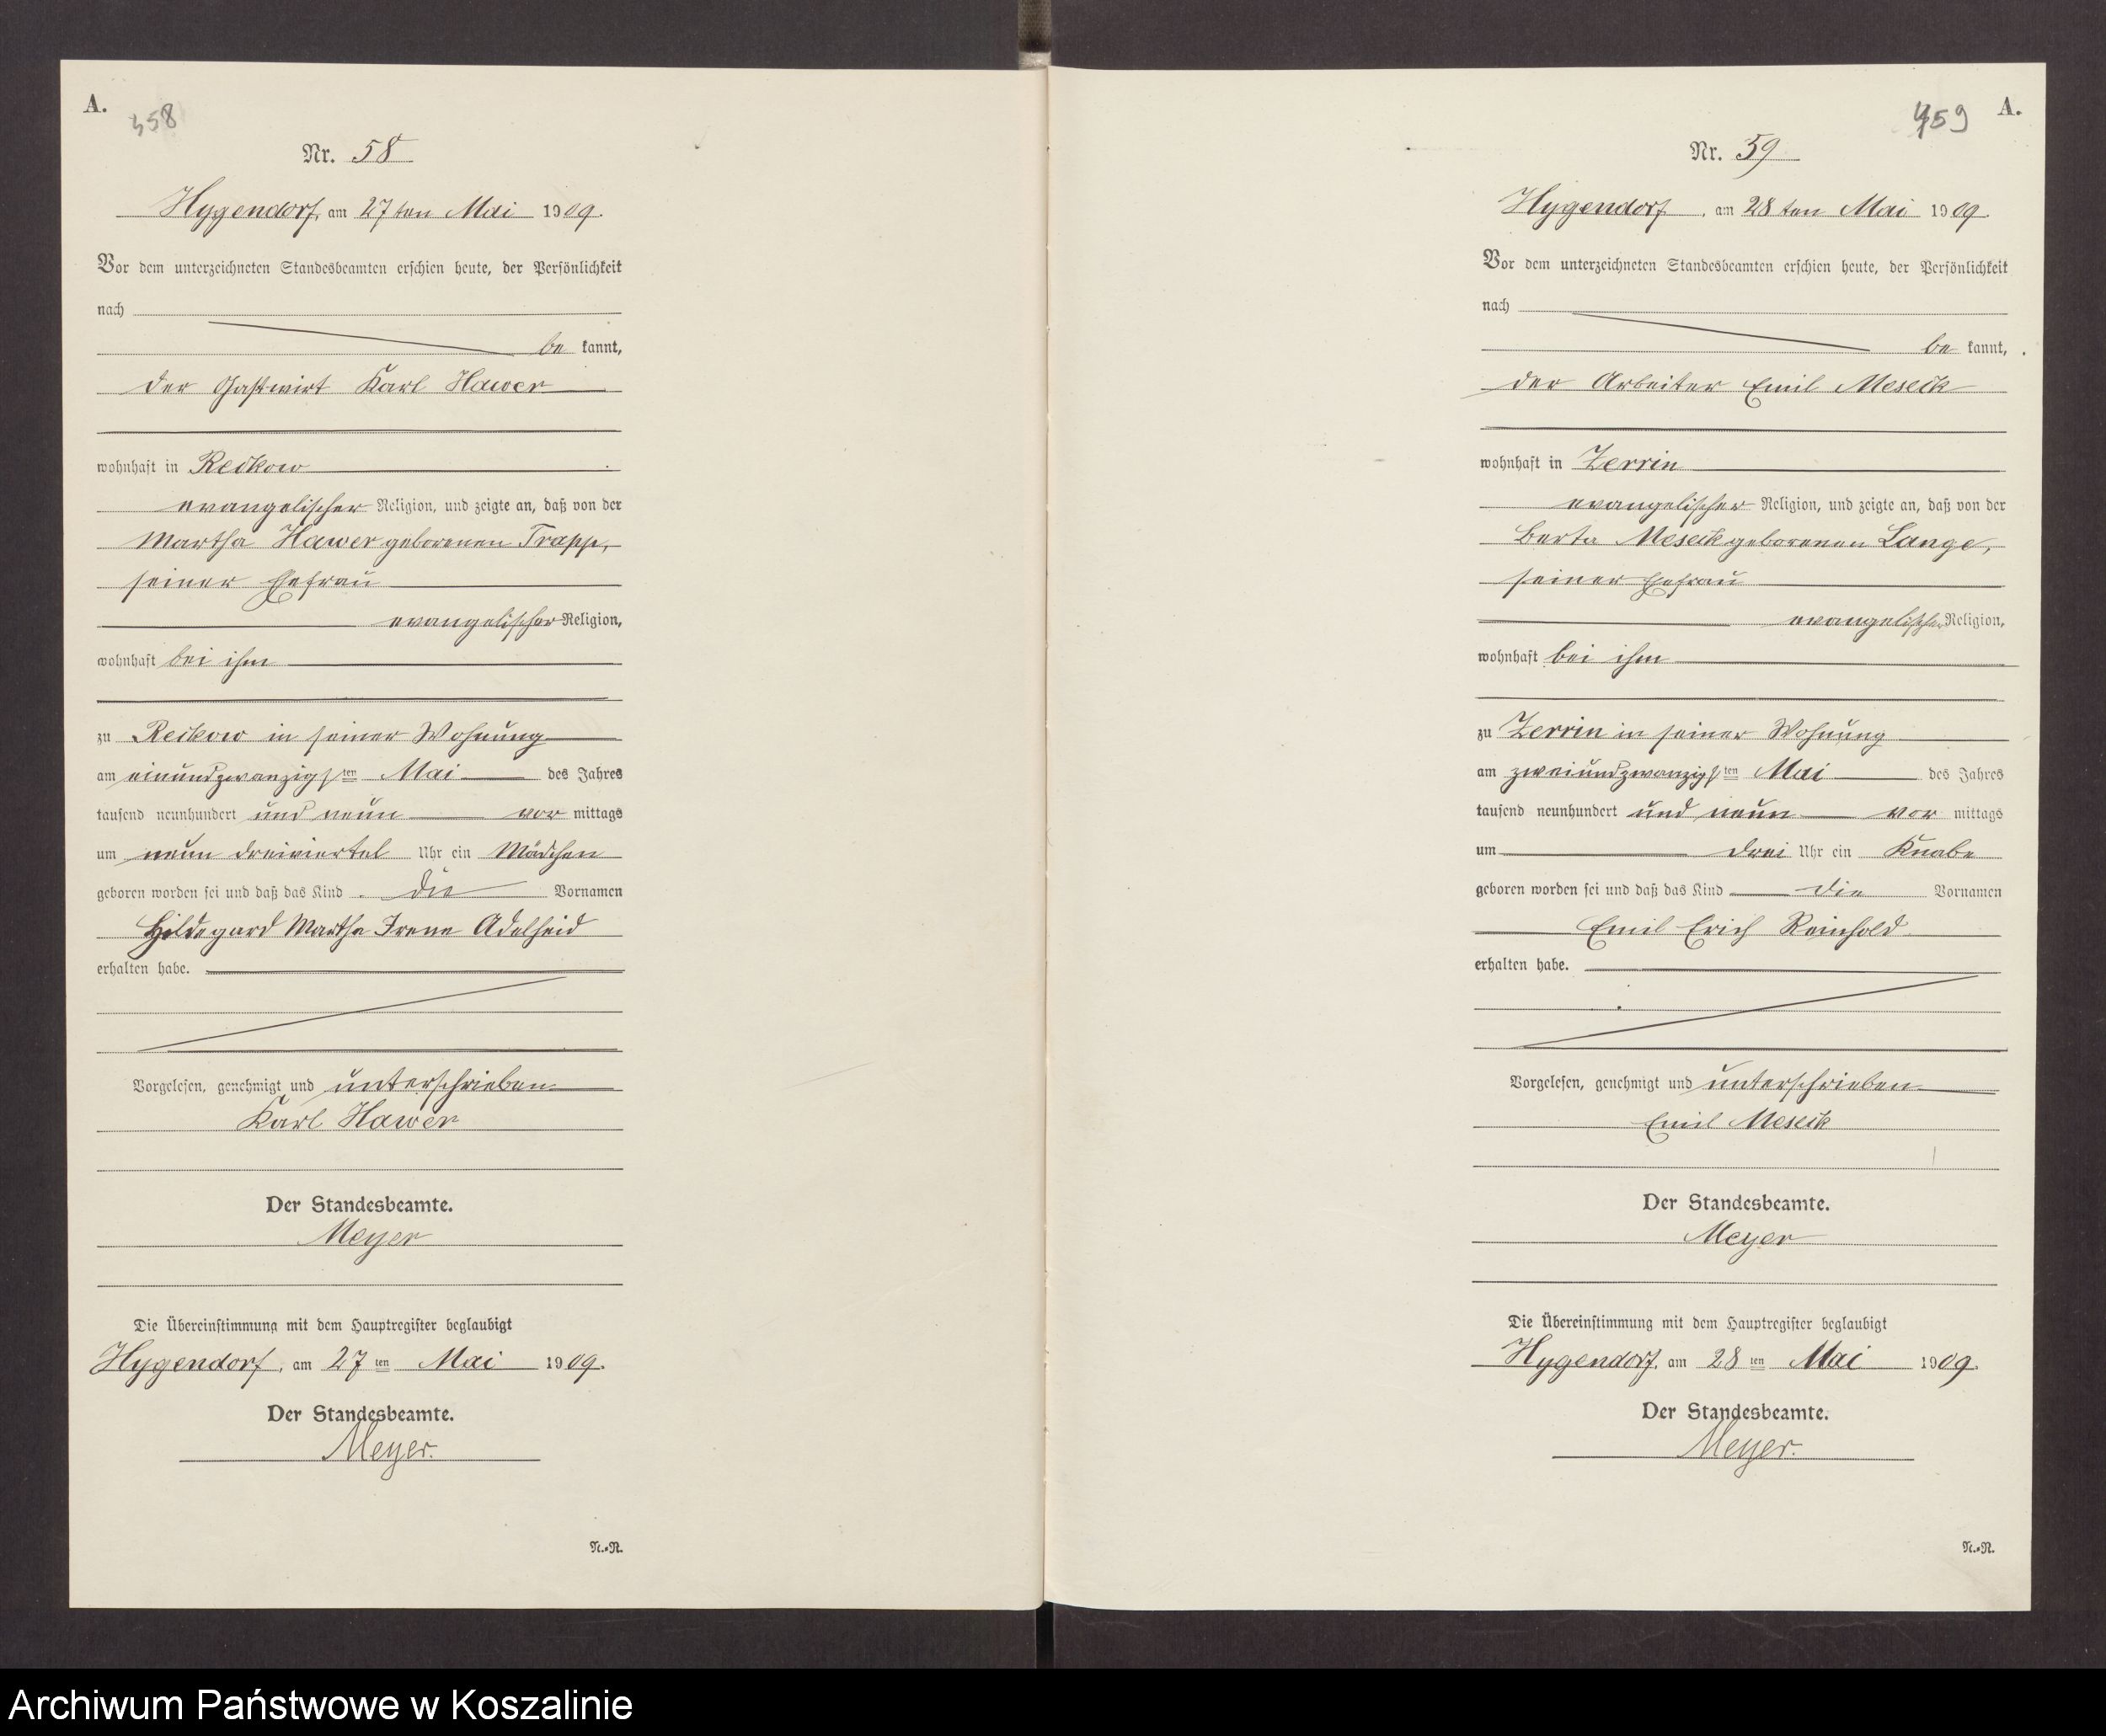 A.
358
Nr. 58
Hygendorf, am 27ten Mai 1909.
Vor dem unterzeichneten Standesbeamten erschien heute, der Persönlichkeit
nach
be kannt,
der Gastwirt Karl Hawer
wohnhaft in Reckow
evangelischer Religion, und zeigte an, daß von der
Martha Hawer geborenen Trapp,
seiner Ehefrau
evangelischer Religion,
wohnhaft bei ihm
zu Reckow in seiner Wohnung
am einundzwanzigsten Mai des Jahres
tausend neunhundert und neun vor mittags
um neun dreiviertel Uhr ein Mädchen
geboren worden sei und daß das Kind die Vornamen
Hildegard Martha Irene Adelheid
erhalten habe.
Vorgelesen, genehmigt und unterschrieben
Karl Hawer
Der Standesbeamte.
Meyer
Die Übereinstimmung mit dem Hauptregister beglaubigt
Hygendorf, am 27ten Mai 1909.
Der Standesbeamte.
Meyer.
N.-R.
59 A.
Nr. 59
Hygendorf, am 28ten Mai 1909.
Vor dem unterzeichneten Standesbeamten erschien heute, der Persönlichkeit
nach
be kannt,
der Arbeiter Emil Meseck
wohnhaft in Zerrin
evangelischer Religion, und zeigte an, daß von der
Berta Meseck geborenen Lange,
seiner Ehefrau
evangelischer Religion,
wohnhaft bei ihm
zu Zerrin in seiner Wohnung
am zweiundzwanzigsten Mai des Jahres
tausend neunhundert und neun vor mittags
um drei Uhr ein Knabe
geboren worden sei und daß das Kind die Vornamen
Emil Erich Reinhold
erhalten habe.
Vorgelesen, genehmigt und unterschrieben
Emil Meseck
Der Standesbeamte.
Meyer
Die Übereinstimmung mit dem Hauptregister beglaubigt
Hygendorf, am 28ten Mai 1909.
Der Standesbeamte.
Meyer.
N.-R.
Archiwum Państwowe w Koszalinie